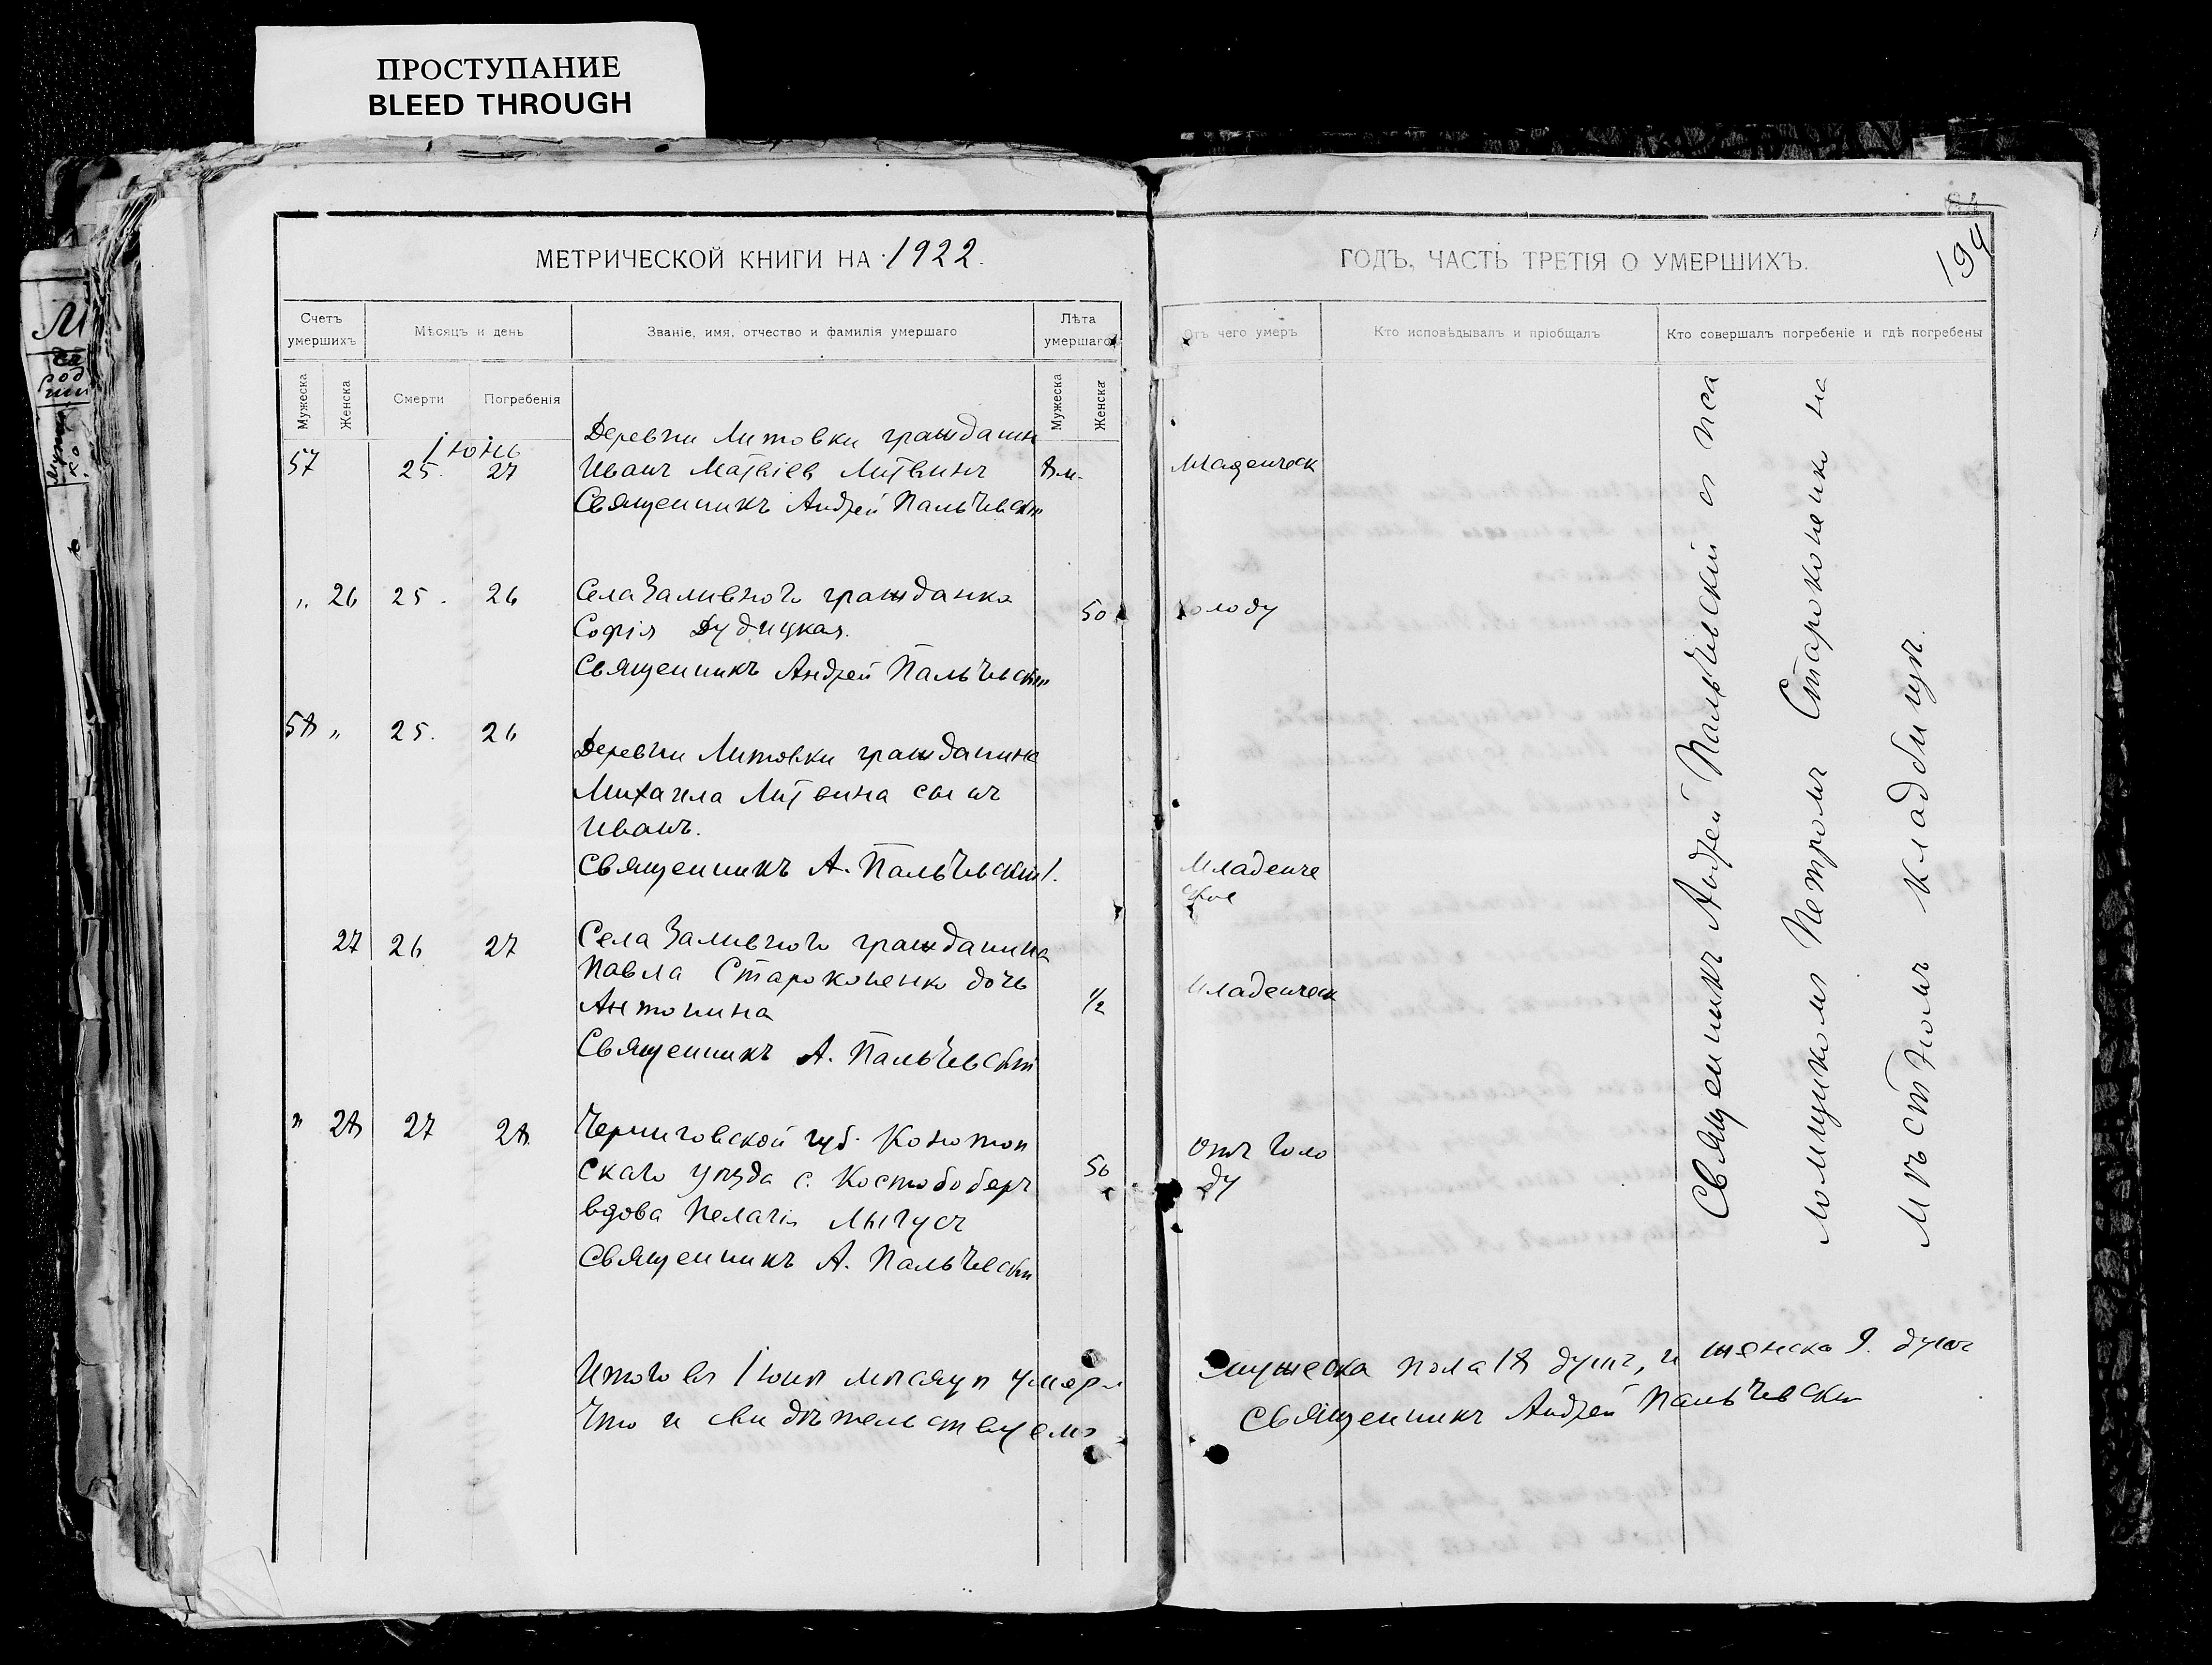 ПРОСТУПАНИЕ
BLEED THROUGH
МЕТРИЧЕСКОЙ КНИГИ НА 1922.
Счетъ умершихъ
Мѣсяцъ и день
Званіе, имя, отчество и фамилія умершаго
Лѣта умершаго
Мужеска
Женска
Смерти
Погребенія
Мужеска
Женска
Іюнь
Деревни Литовки гражданин
57 25. 27 Иванъ Матвіев Литвинъ 8 м.
Священникъ Андрей Пальчевскій
„ 26 25. 26 Села Заливного гражданка
Софія Дудицкая. 50
Священникъ Андрей Пальчевскій
58 „ 25. 26
Деревни Литовки гражданина
Михаила Литвина сынъ
Иванъ.
Священникъ А. Пальчевскій 1.
27 26 27 Села Заливного гражданина
Павла Староконенко дочь
Антонина 1/2
Священникъ А. Пальчевскій
„ 28 27 28. Черниговской губ. Конотоп
скаго уѣзда с. Костободеръ 56
вдова Пелагія Лыгусъ
Священникъ А. Пальчевскі
Итого въ Іюнѣ мѣсяцѣ умерл
Что и свидѣтельствуемъ
194
ГОДЪ, ЧАСТЬ ТРЕТІЯ О УМЕРШИХЪ.
Отъ чего умеръ
Кто исповѣдывалъ и пріобщалъ
Кто совершалъ погребеніе и гдѣ погребены
Младенческ
Голоду
Младенче
ское
Младенческ
Отъ голо
ду
Священникъ Андрей Пальчевскій съ пса
ломщикомъ Петромъ Староконенко на
мѣстномъ кладбищѣ.
мужеска пола 18 душъ, и женска 9. душъ
Священникъ Андрей Пальчевскі